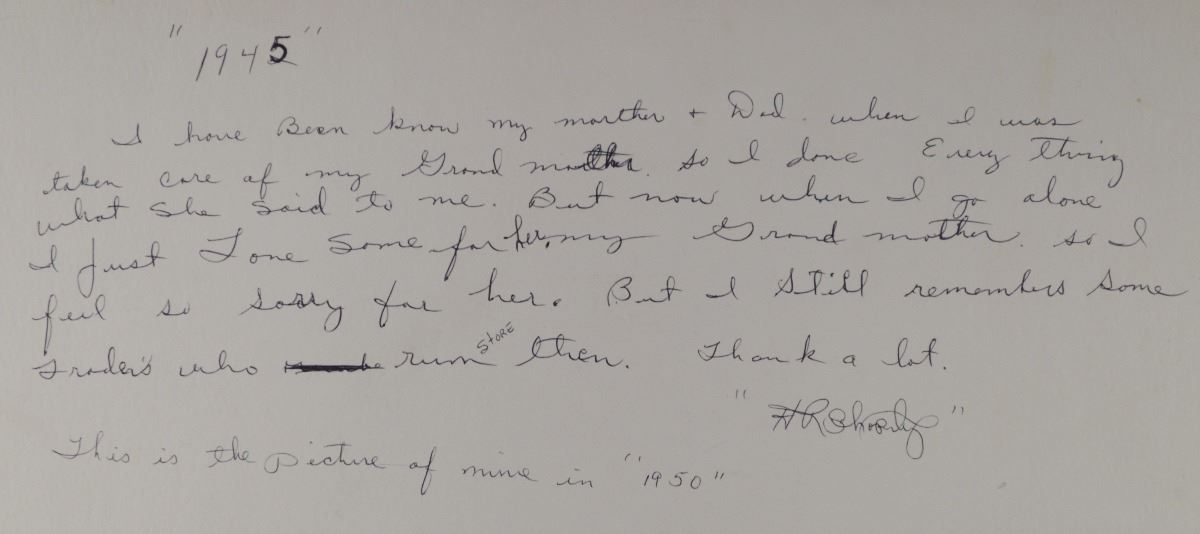 "1945"
I have Been know my marther + Dad. when I was
taken care of my Grand mother. so I done Every thing
what She Said to me. But now when I go alone
I just Tone Some for her, my Grand mother. so I
feel so sorry for her. But I still remembers some
Traders who run STORE then. Thank a lot.
"
"
This is the picture of mine in "1950"